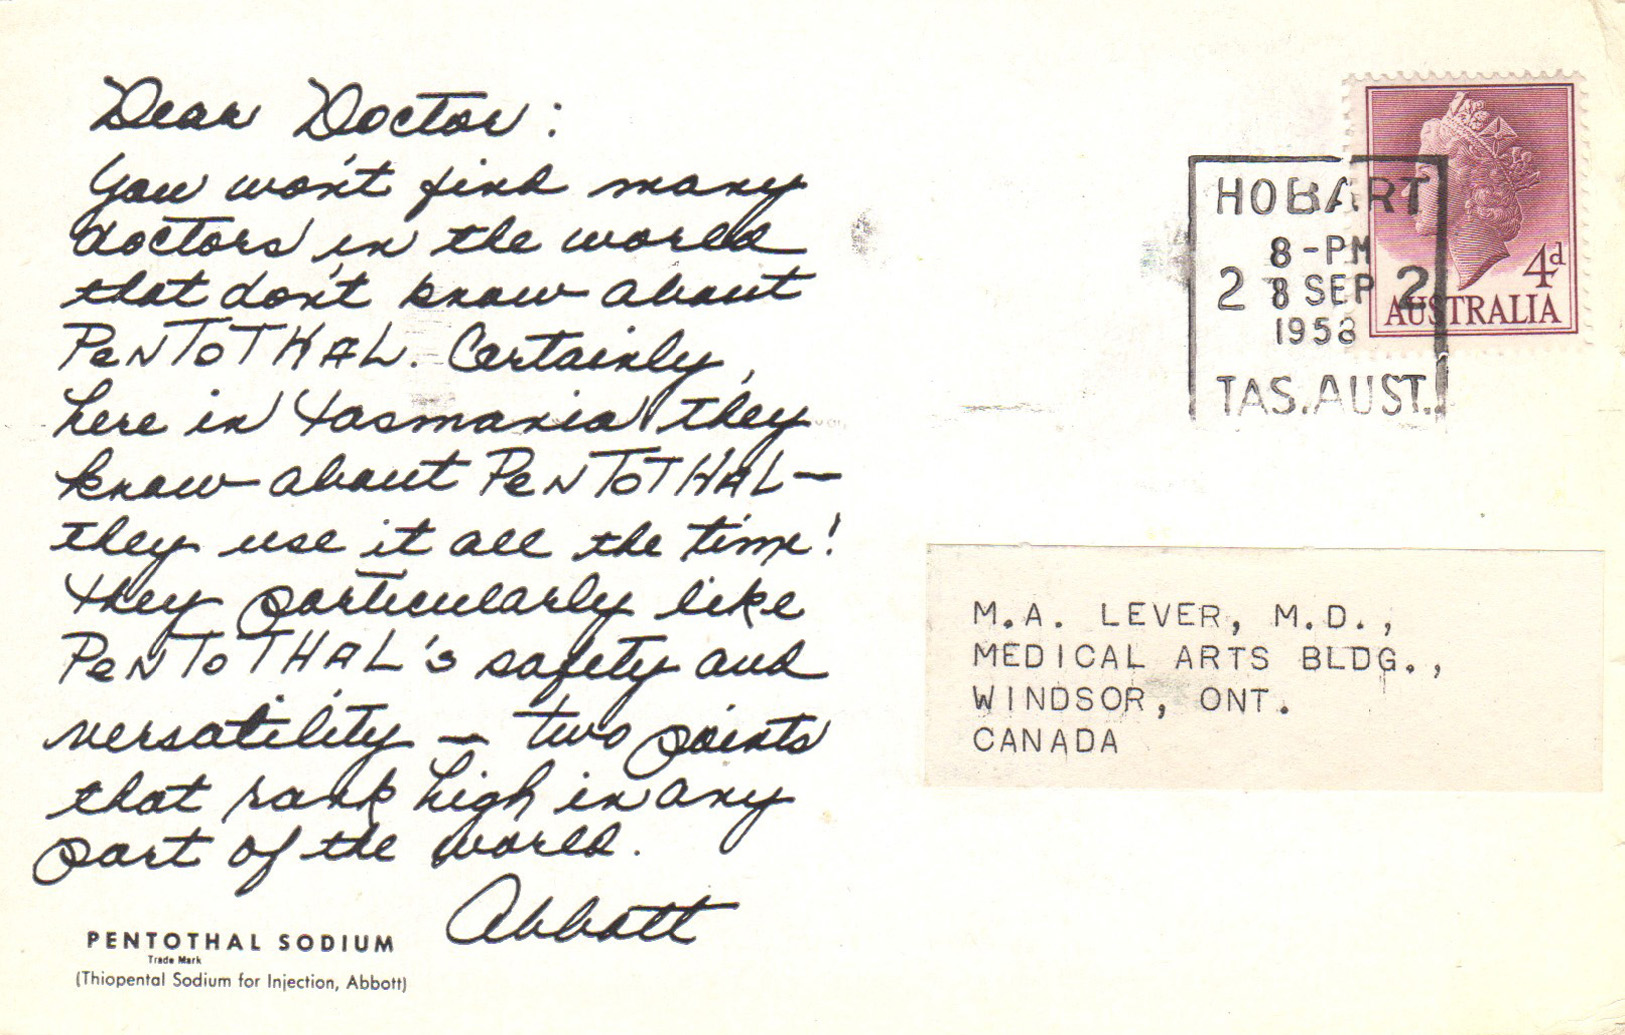 Dear Doctor:
You won't find many
doctors in the world
that don't know about
PENTOTHAL. Certainly,
here in Tasmania they
know about PENTOTHAL—
they use it all the time!
They particularly like
PENTOTHAL's safety and
versatility — two points
that rank high in any
part of the world.
Abbott
PENTOTHAL SODIUM
Trade Mark
(Thiopental Sodium for Injection, Abbott)
HOBART
8-PM
2 8 SEP 2
1958
TAS. AUST.
4d
AUSTRALIA
M.A. LEVER, M.D.,
MEDICAL ARTS BLDG.,
WINDSOR, ONT.
CANADA